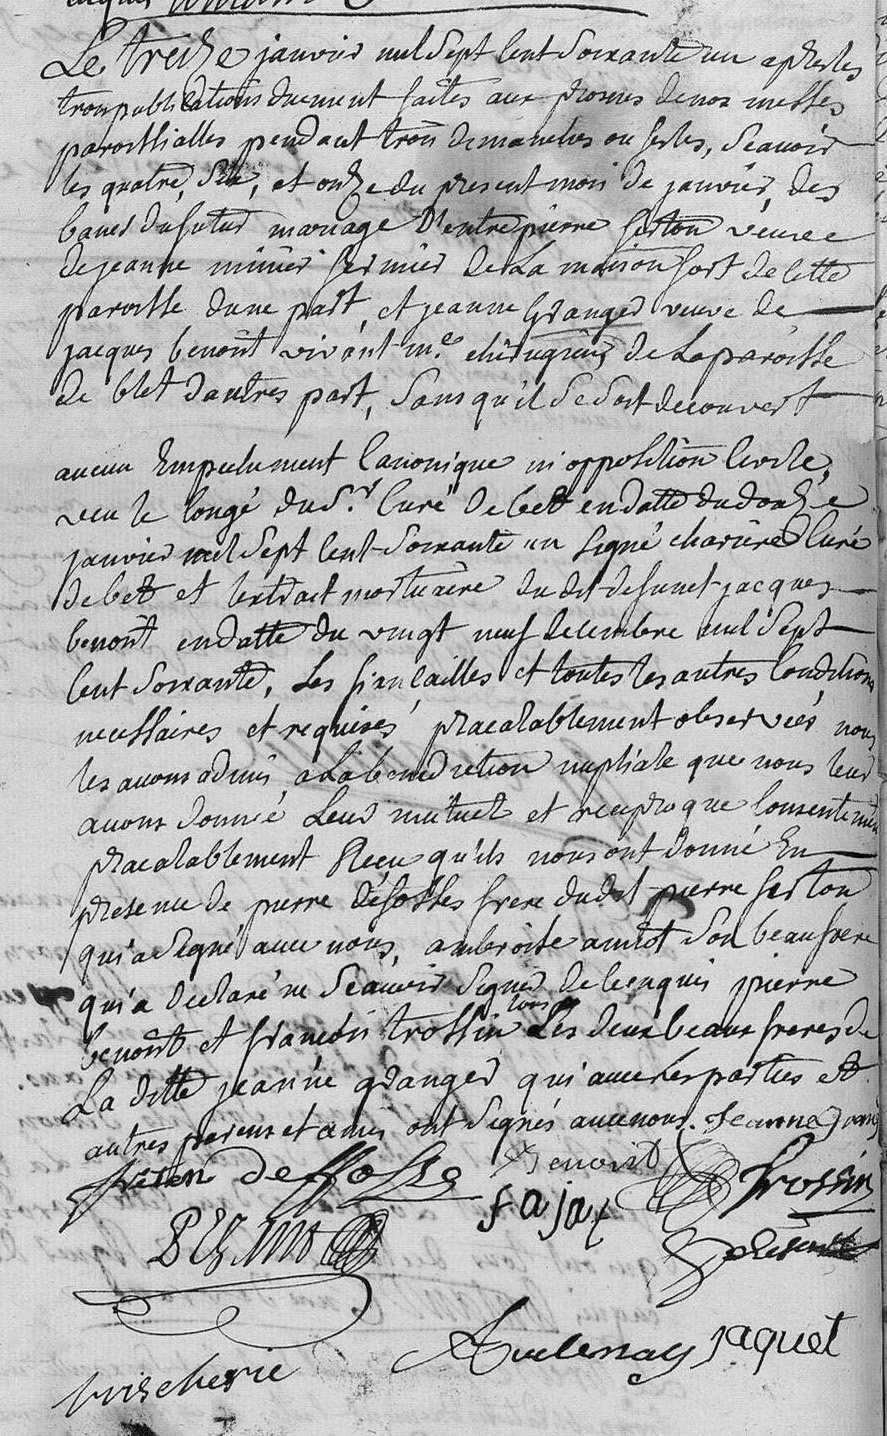 Le treize janvier mil sept cent soixante un apres les
trois publications duement faites aux prosnes de nos messes
paroissialles pendant trois dimanches ou festes, scavoir
les quatre, six, et onze du present mois de janvier, des
bans du futur mariage d'entre pierre ferton veuf
de jeanne minier fermier de La maison fort de cette
paroisse dune part, et jeanne Granger veuve de
jacques benoist vivant m.e chirugien de La paroisse
de blet dautres part, sans qu'il se soit decouvert
aucun Empechement Canonique ni opposition Civile,
veu le congé du S.r Curé de bett en datte du douze
janvier mil sept cent soixante un signé charier Curé
de bett et lextrait mortuaire du dit defunct jacques
benoit en datte du vingt neuf decembre mil sept
cent soixante, Les fiancailles et toutes les autres Conditions
necessaires et requises praealablement observées nous
les avons admis a La benediction nuptiale que nous leur
avons donneé Leur mutuel et reciproque Consentement
praealablement Receu qu'ils nous ont donné En
presence de pierre Désfosses frere dudit pierre ferton
qui a signé avec nous, ambroise amiot son beaufrere
qui a declaré ne scavoir signer de ce enquis pierre
benoist et françois trossin tous Les deux beaux freres de
La ditte jeanne granger qui avec les parties et
autres parens et amis ont signés avec nous. Jeanne Grang
deffosse Benoist Trossin
fajax
Auclenay jaquet